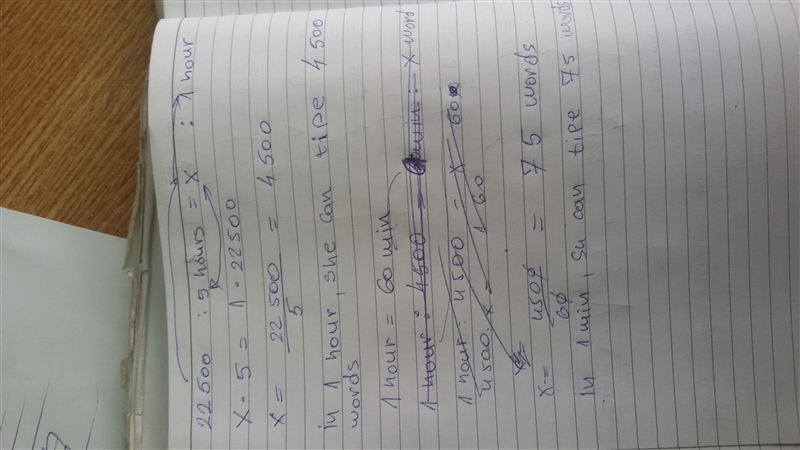 22500 : 5 hours = x : 1 hour
x · 5 = 1 · 22500
x = 22500 / 5 = 4500
in 1 hour, she can tipe 4 500
words
1 hour = 60 min
1 hour : 4500 = min : x word
1 hour : 4500 = x 60
4500 · x = 1 60
x = 4500 / 60 = 75 words
in 1 min, su can tipe 75 words